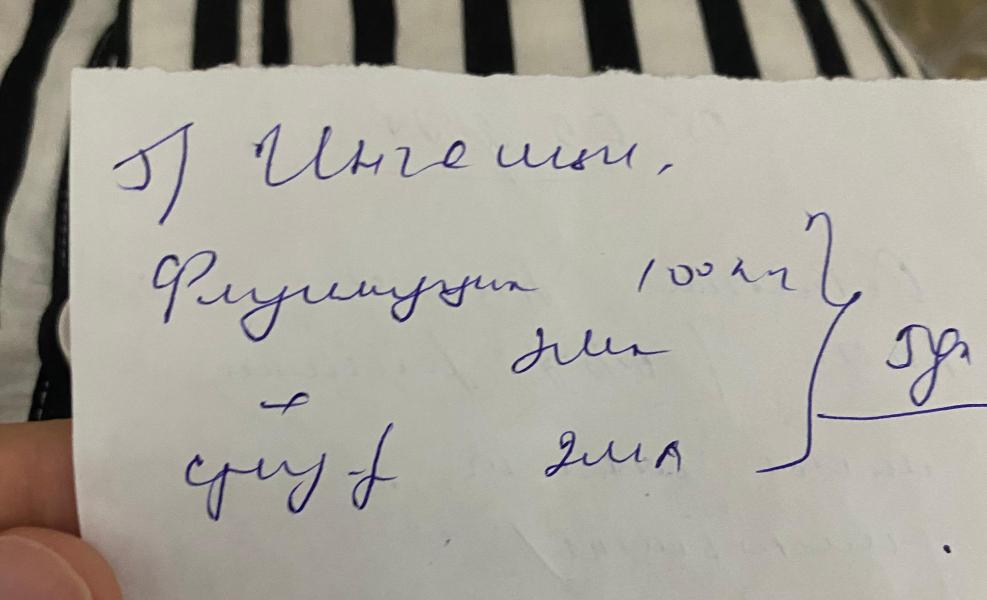 5) Ингаляции.
Флуимуцил 100 мг
2 мл
+
физ р-р 2 мл
5 дн